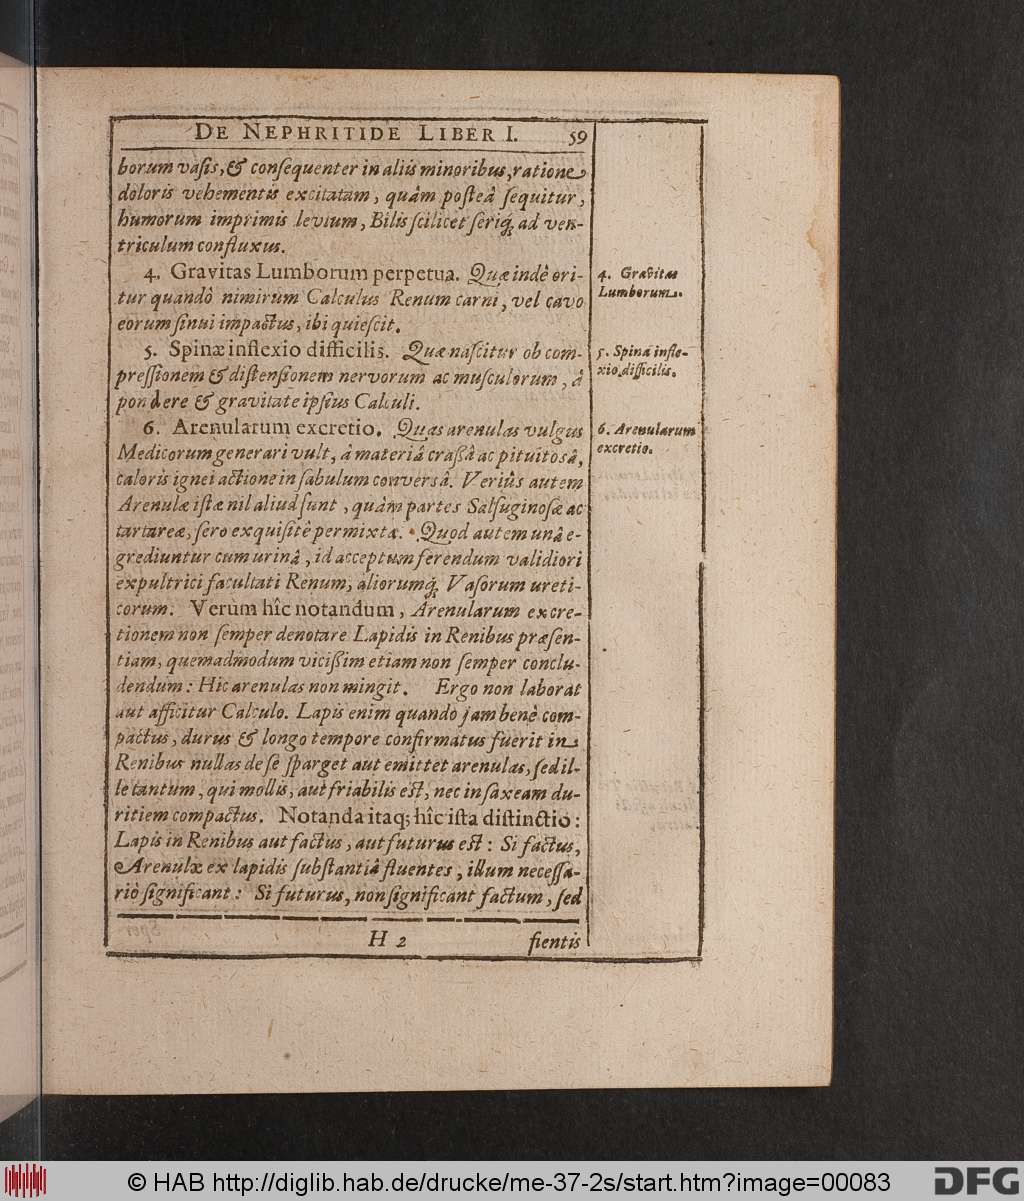 DE NEPHRITIDE LIBER I. 59
borum vasis, & consequenter in aliis minoribus, ratione
doloris vehementis excitatam, quàm posteâ sequitur,
humorum imprimis levium, Bilis scilicet seriq́; ad ven-
triculum confluxus.
4. Gravitas Lumborum perpetua. Quæ indè ori-
tur quandò nimirum Calculus Renum carni, vel cavo
eorum sinui impactus, ibi quiescit.
4. Gravitas
Lumborum.
5. Spinæ inflexio difficilis. Quæ nascitur ob com-
pressionem & distensionem nervorum ac musculorum, â
pondere & gravitate ipsius Calculi.
5. Spinæ infle-
xio difficilis.
6. Arenularum excretio. Quas arenulas vulgus
Medicorum generari vult, â materiâ crassâ ac pituitosâ,
caloris ignei actione in sabulum conversâ. Veriùs autem
Arenulæ istæ nil aliud sunt, quàm partes Salsuginosæ ac
tartareæ, sero exquisitè permixtæ. Quod autem unâ e-
grediuntur cum urinâ, id acceptum ferendum validiori
expultrici facultati Renum, aliorumq́; Vasorum ureti-
corum. Verùm hîc notandum, Arenularum excre-
tionem non semper denotare Lapidis in Renibus præsen-
tiam, quemadmodum vicißim etiam non semper conclu-
dendum: Hic arenulas non mingit. Ergo non laborat
aut afficitur Calculo. Lapis enim quandò jam benè com-
pactus, durus & longo tempore confirmatus fuerit in
Renibus nullas de se sparget aut emittet arenulas, sed il-
le tantum, qui mollis, aut friabilis est, nec in saxeam du-
ritiem compactus. Notanda itaq; hîc ista distinctio:
Lapis in Renibus aut factus, aut futurus est: Si factus,
Arenulæ ex lapidis substantiâ fluentes, illum necessa-
riò significant: Si futurus, non significant factum, sed
6. Arenularum
excretio.
H 2 fientis
© HAB http://diglib.hab.de/drucke/me-37-2s/start.htm?image=00083
DFG